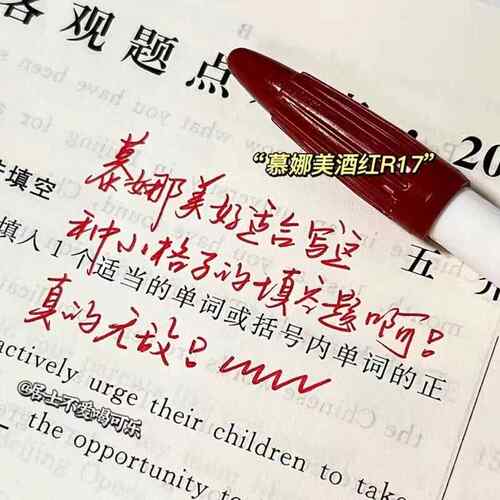 客观题点
20
“慕娜美酒红R1.7”
慕娜美好适合写这
填空
五
种小格子的填空题啊!
填入1个适当的单词或括号内单词的正
真的无敌!
actively urge their children to take
@居士不爱喝可乐
the opportunity to